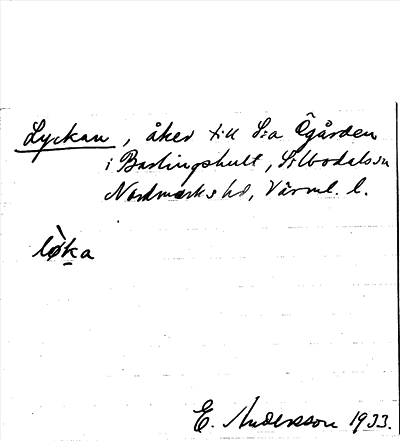 Lyckan, åker till S:a Ögården
i Bastingshult, Silbodals sn
Nordmarks hd, Värml. l.
lø̀ka
E. Andersson 1933.